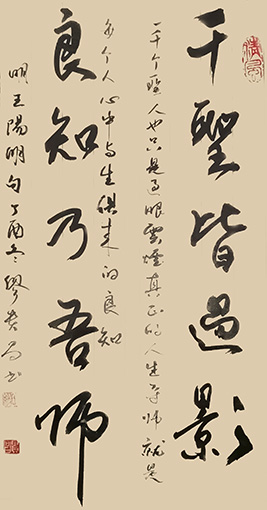 千聖皆過影
一千个聖人也只是过眼雲煙真正的人生导师就是
良知乃吾師
每个人心中与生俱来的良知
明王陽明句丁酉冬繆